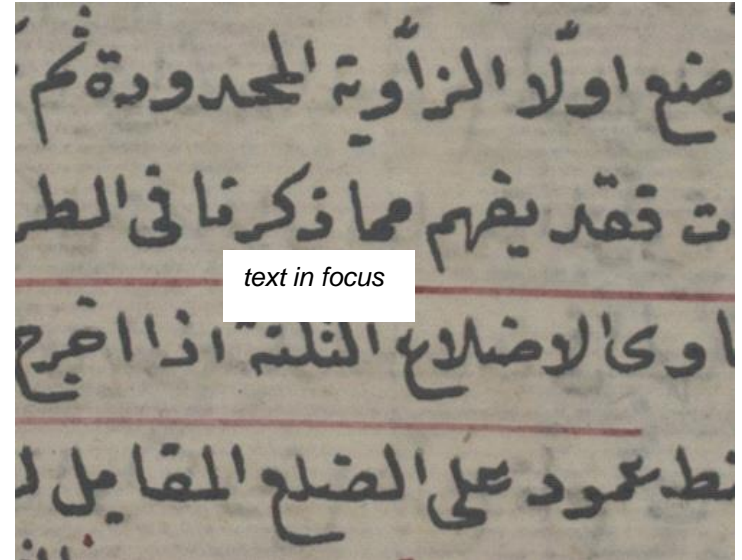 وضع اولًا الزاوية المحدودة ثم
ت فقد يفهم مما ذكرنا فى الطر
text in focus
اوى الاضلاع الثلثة اذا اخرج
عمود على الضلع المقابل